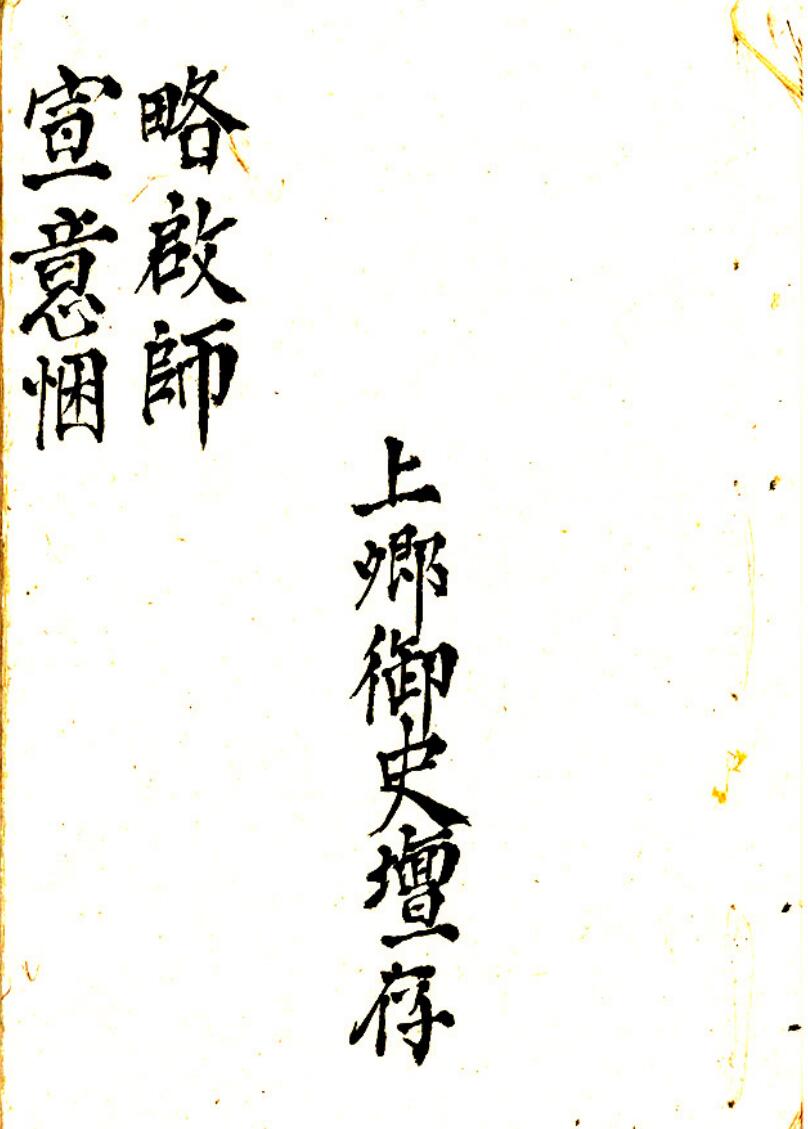 上鄉御史壇存
略啟師
宣意悃